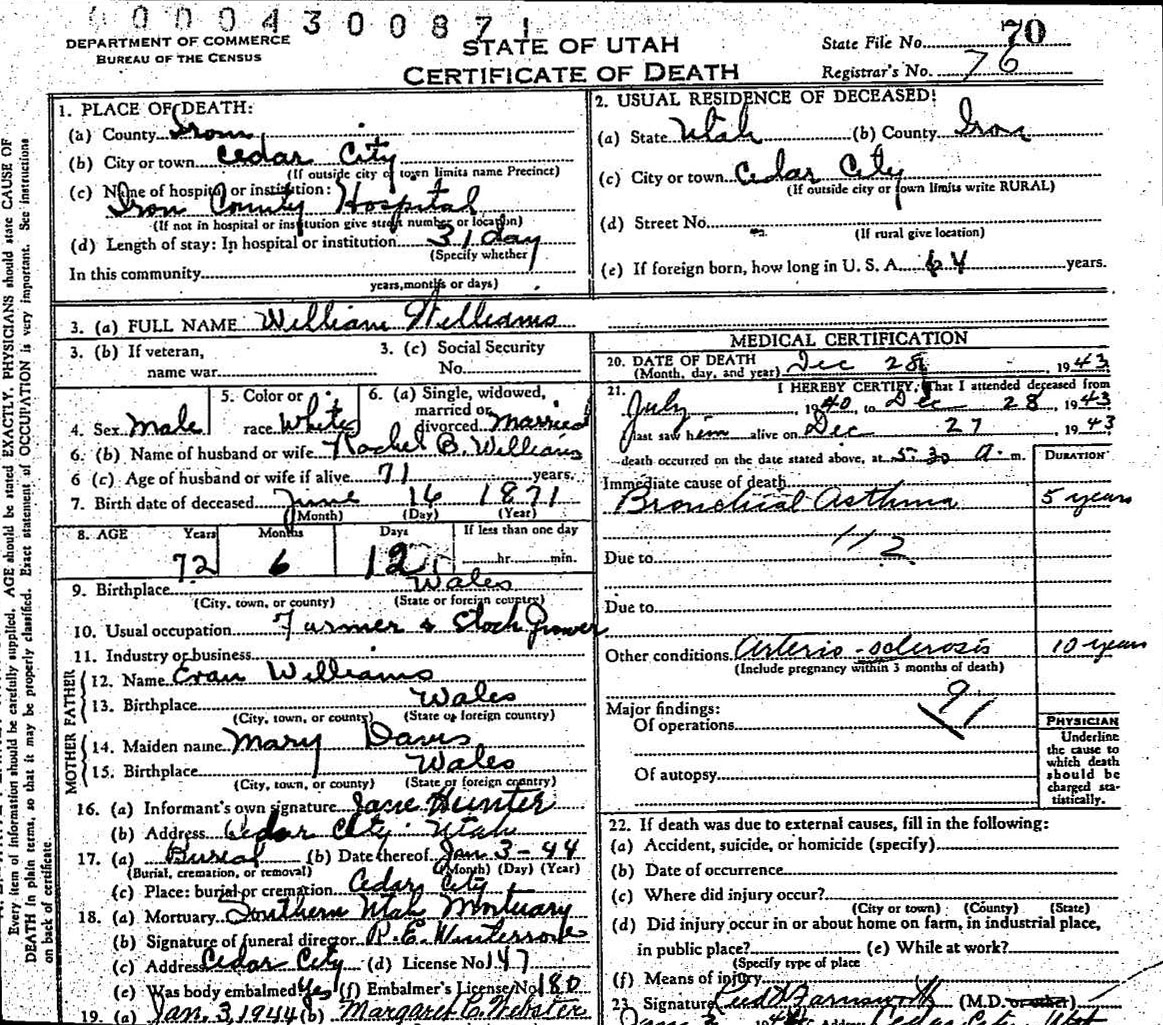 000430087 1
DEPARTMENT OF COMMERCE
BUREAU OF THE CENSUS
STATE OF UTAH
CERTIFICATE OF DEATH
State File No. 70
Registrar's No. 76
Every item of information should be carefully supplied. AGE should be stated EXACTLY. PHYSICIANS should state CAUSE OF
DEATH in plain terms, so that it may be properly classified. Exact statement of OCCUPATION is very important. See instructions
on back of certificate.
1. PLACE OF DEATH:
(a) County Iron
(b) City or town Cedar City
(If outside city or town limits name Precinct)
(c) Name of hospital or institution:
Iron County Hospital
(If not in hospital or institution give street number or location)
(d) Length of stay: In hospital or institution 31 day
(Specify whether
In this community
years, months or days)
2. USUAL RESIDENCE OF DECEASED:
(a) State Utah (b) County Iron
(c) City or town Cedar City
(If outside city or town limits write RURAL)
(d) Street No.
(If rural give location)
(e) If foreign born, how long in U. S. A. 64 years.
3. (a) FULL NAME William Williams
3. (b) If veteran, name war
3. (c) Social Security No.
4. Sex Male
5. Color or race White
6. (a) Single, widowed, married or divorced Married
6. (b) Name of husband or wife Rachel B. Williams
6 (c) Age of husband or wife if alive 71 years.
7. Birth date of deceased June 16 1871
(Month) (Day) (Year)
8. AGE Years Months Days If less than one day
72 6 12 hr. min.
9. Birthplace Wales
(City, town, or county) (State or foreign country)
10. Usual occupation Farmer & Stock Grower
11. Industry or business
FATHER
12. Name Evan Williams
13. Birthplace Wales
(City, town, or county) (State or foreign country)
MOTHER
14. Maiden name Mary Davis
15. Birthplace Wales
(City, town, or county) (State or foreign country)
16. (a) Informant's own signature Jane Hunter
(b) Address Cedar City Utah
17. (a) Burial (b) Date thereof Jan 3-44
(Burial, cremation, or removal) (Month) (Day) (Year)
(c) Place: burial or cremation Cedar City
18. (a) Mortuary Southern Utah Mortuary
(b) Signature of funeral director R. E. Winterrose
(c) Address Cedar City (d) License No. 147
(e) Was body embalmed Yes (f) Embalmer's License No. 180
19. (a) Jan. 3, 1944 (b) Margaret C. Webster
MEDICAL CERTIFICATION
20. DATE OF DEATH
(Month, day, and year) Dec 28, 1943
21. I HEREBY CERTIFY, That I attended deceased from
July, 1940, to Dec 28, 1943
last saw him alive on Dec 27 1943
death occurred on the date stated above, at 5:30 a. m.
DURATION
Immediate cause of death
Bronchial Asthma 5 years
112
Due to
Due to
Other conditions Arterio-sclerosis 10 years
(Include pregnancy within 3 months of death)
97
Major findings:
Of operations
Of autopsy
PHYSICIAN
Underline
the cause to
which death
should be
charged sta-
tistically.
22. If death was due to external causes, fill in the following:
(a) Accident, suicide, or homicide (specify)
(b) Date of occurrence
(c) Where did injury occur?
(City or town) (County) (State)
(d) Did injury occur in or about home on farm, in industrial place,
in public place? (e) While at work?
(Specify type of place
(f) Means of injury
23 Signature Farnsworth (M.D. or other)
Address Cedar City Utah